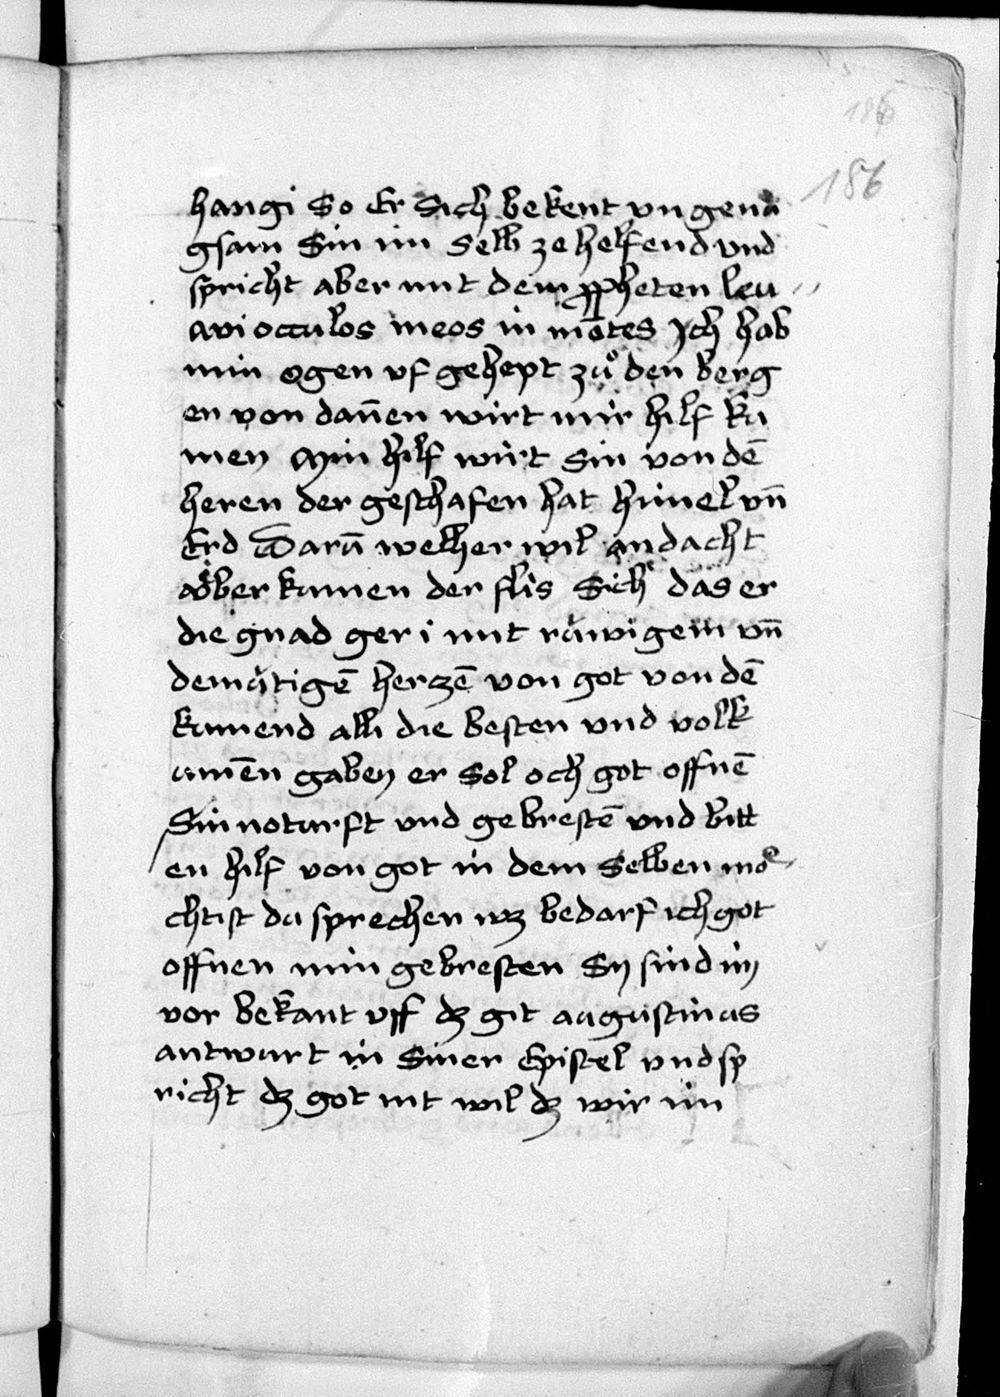 186
186
hangi So Er Sich bekent vngenů
gsam Sin im Selb ze helfend vnd
spricht aber mit dem ppheten leu
avi occulos meos in mōtes Ich hab
min ogen vf gehept zů den berg
en von dan̄en wirt mir hilf ku
men Min hilf wirt Sin von dē
heren der geschafen hat himel vn̄
Erd Darū welher wil andacht
aͦber kumen der flis Sich das er
die gnad geri mit rüwigem vn̄
demütigē herczē von got von dē
kumend alli die besten vnd volk
umēn gaben er Sol och got offnē
Sin noturft vnd gebrestē vnd bitt
en hilf von got in dem Selben mö
chtist du sprechen wz bedarf ich got
offnen min gebresten Sy sind im
vor bekant vff dz git augustinus
antwurt in Siner Epistel vnd sp
richt dz got nit wil dz wir im